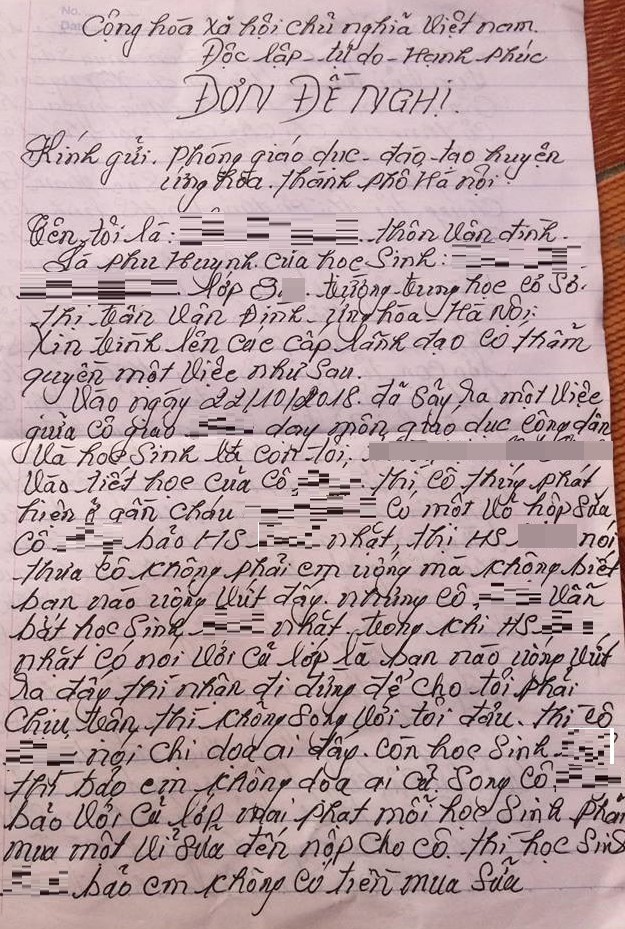 No.
Cộng hòa xã hội chủ nghĩa Việt nam.
Độc lập - tự do - Hạnh phúc
ĐƠN ĐỀ NGHỊ.
Kính gửi. Phòng giáo dục - đào tạo huyện
ứng hòa. thành phố Hà nội
Tên tôi là: thôn Vân đình.
Là phụ Huynh của học Sinh:
lớp 8 trường trung học cơ Sở.
thị trấn Vân Đình - ứng hòa - Hà Nội:
Xin trình lên các cấp lãnh đạo có thẩm
quyền một Việc như sau.
Vào ngày 22/10/2018. đã Sảy ra một Việc
giữa cô giáo dạy môn giáo dục công dân
Và học Sinh là con tôi,
Vào tiết học của cô thì cô thấy phát
hiện ở gần cháu có một vỏ hộp Sữa
Cô bảo HS nhặt, thì HS nói
thưa cô không phải em uống mà không biết
bạn nào uống Vứt đấy. nhưng cô Vẫn
bắt học Sinh nhặt. trong khi HS
nhặt có nói Với cả lớp là bạn nào uống Vứt
Ra đấy thì nhận đi đừng để cho tôi phải
Chịu trận, thì không Song Với tôi đâu. thì cô
nói chị dọa ai đấy. còn học Sinh
thì bảo em không dọa ai cả. Song cô
bảo Với cả lớp mai phạt mỗi học Sinh phải
mua một Vỉ Sữa đến nộp cho cô. thì học Sinh
bảo em không có tiền mua Sữa